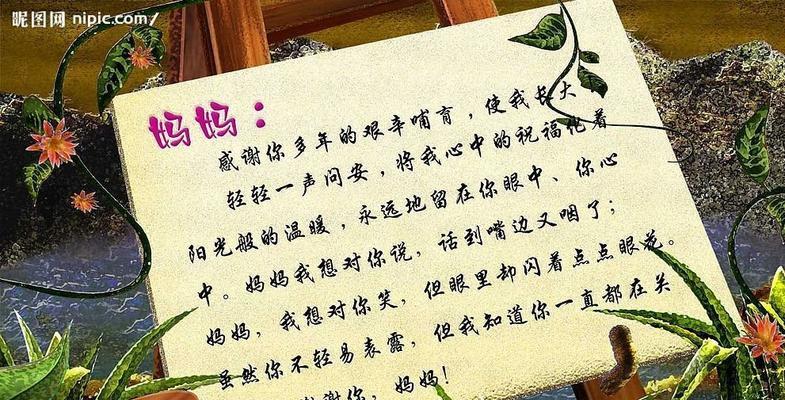 昵图网 nipic.com/
妈妈：
感谢你多年的艰辛哺育，使我长大
轻轻一声问安，将我心中的祝福化着
阳光般的温暖，永远地留在你眼中、你心
中。妈妈我想对你说，话到嘴边又咽了；
妈妈，我想对你笑，但眼里却闪着点点眼花。
虽然你不轻易表露，但我知道你一直都在关
谢你，妈妈！